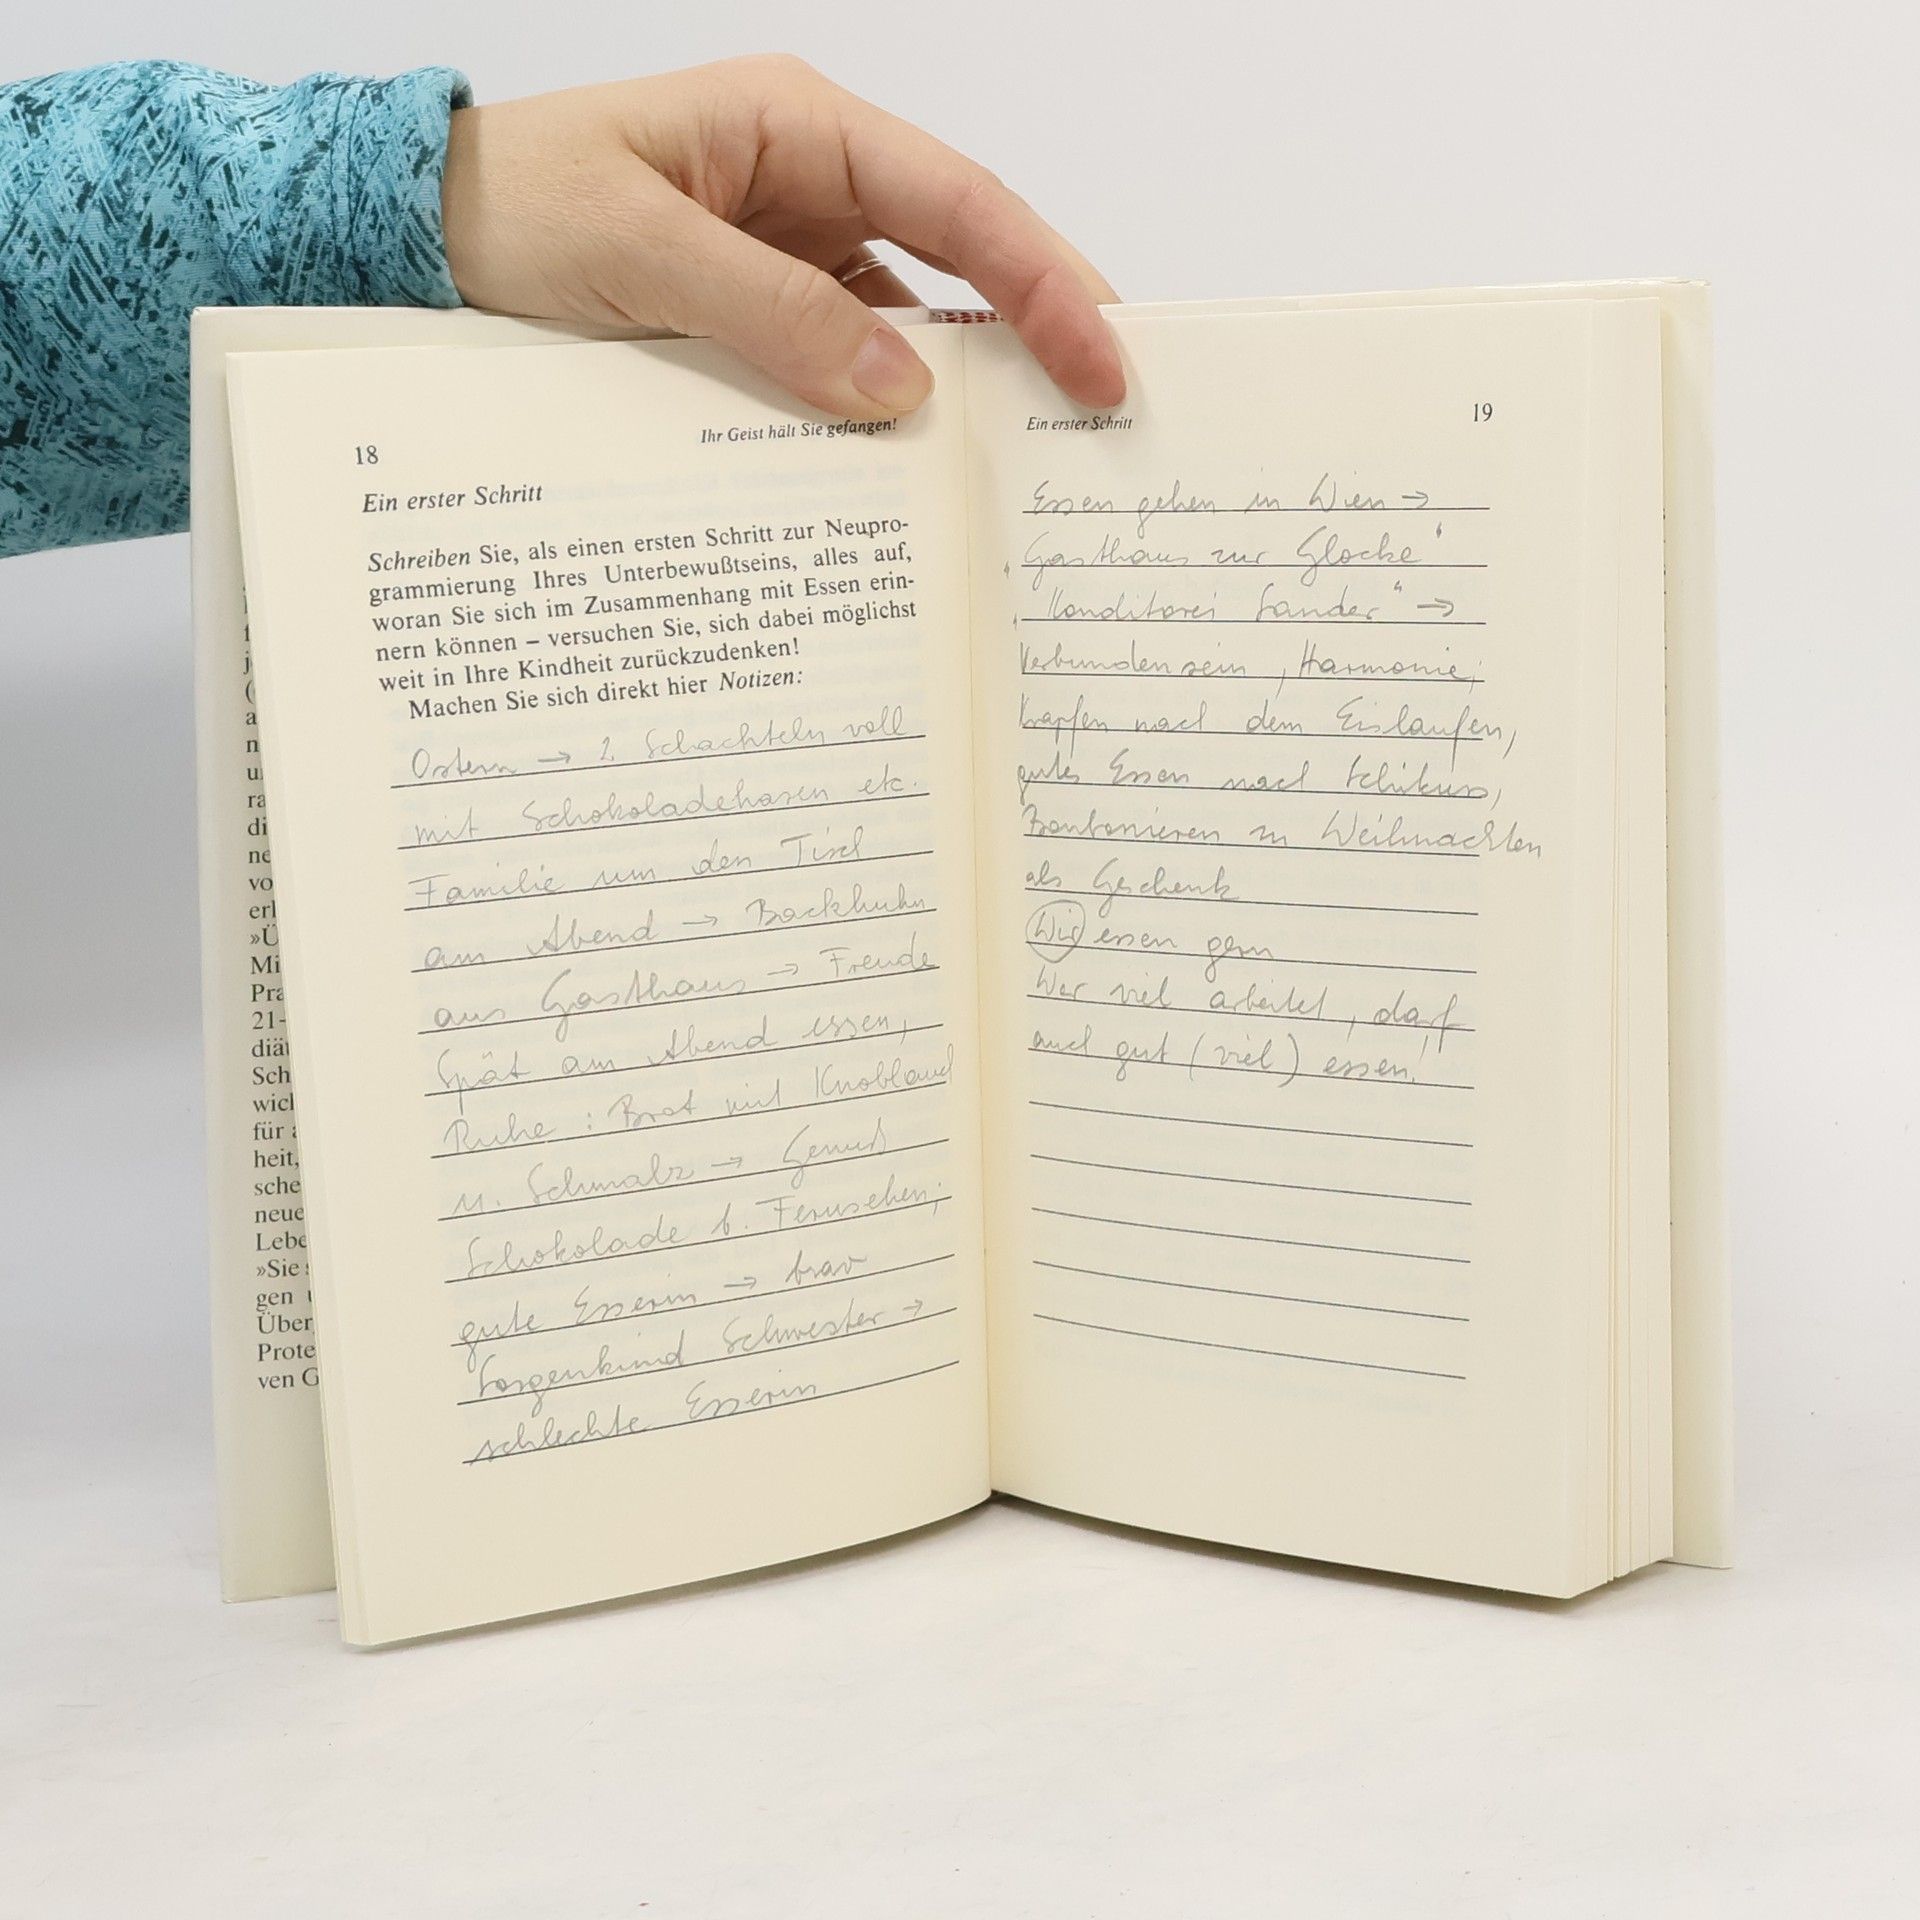 18
Ihr Geist hält Sie gefangen!
Ein erster Schritt
Schreiben Sie, als einen ersten Schritt zur Neupro-
grammierung Ihres Unterbewußtseins, alles auf,
woran Sie sich im Zusammenhang mit Essen erin-
nern können – versuchen Sie, sich dabei möglichst
weit in Ihre Kindheit zurückzudenken!
Machen Sie sich direkt hier Notizen:
Ostern → 2 Schachteln voll
mit Schokoladehasen etc.
Familie um den Tisch
am Abend → Backhuhn
aus Gasthaus → Freude
Spät am Abend essen,
Ruhe : Brot mit Knoblauch
u. Schmalz → Genuß
Schokolade b. Fernsehen;
gute Esserin → brav
Sorgenkind Schwester →
schlechte Esserin
Ein erster Schritt
19
Essen gehen in Wien →
„Gasthaus zur Glocke“
„Konditorei Sander“ →
Verbundensein, Harmonie;
Krapfen nach dem Eislaufen,
gutes Essen nach Schikurs,
Bonbonieren zu Weihnachten
als Geschenk
Wir essen gern
Wer viel arbeitet, darf
auch gut (viel) essen!
f
j
(
a
n
u
ra
di
ne
vo
erl
»Ü
Mi
Pra
21-
diä
Sch
wich
für
heit,
sche
neue
Lebe
»Sie
gen
Über
Prote
ven G